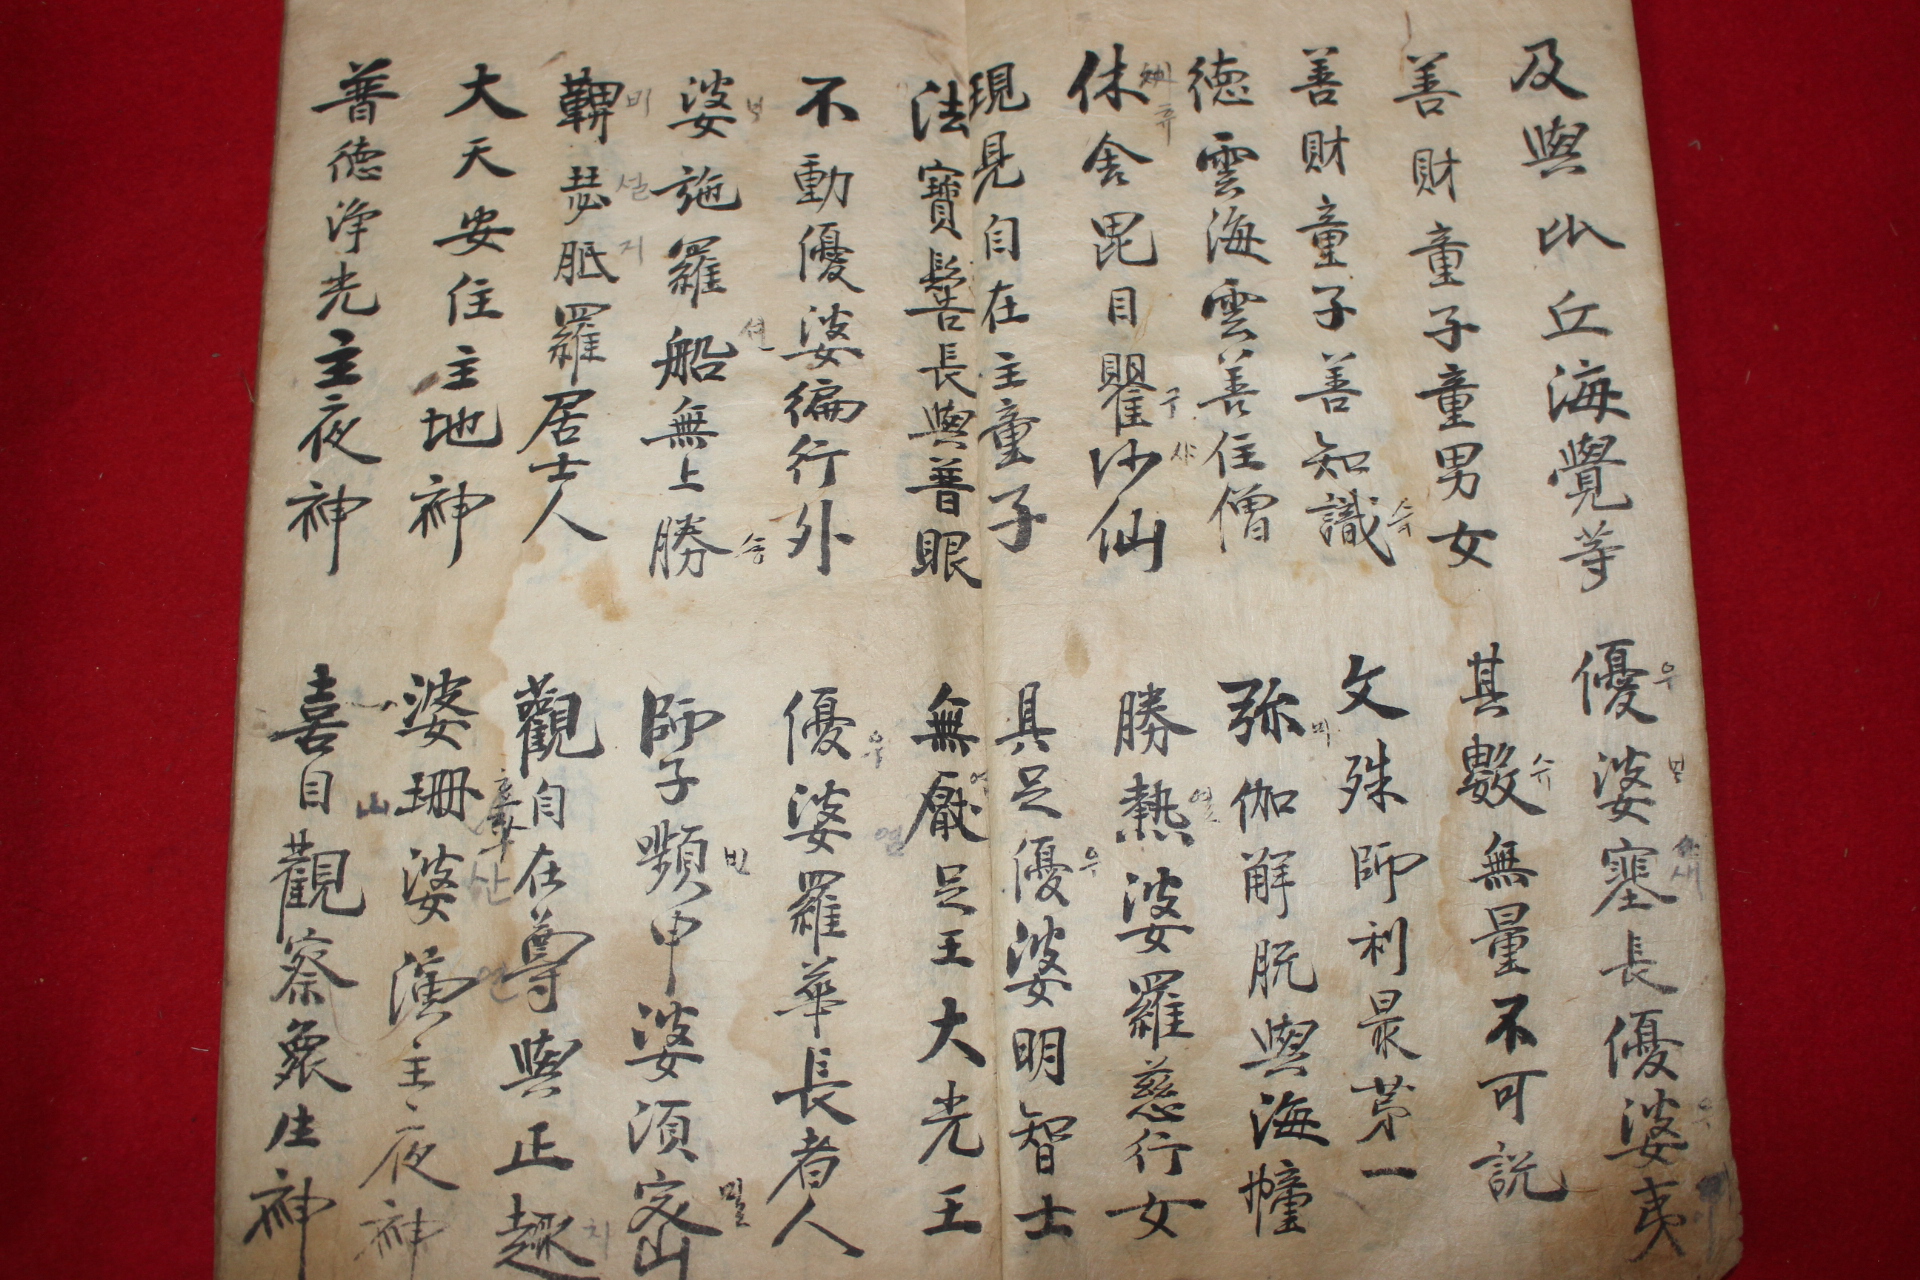 及與比丘海覺等 優婆塞長優婆夷
우
새
우
善財童子童男女 其數無量不可說
수
善財童子善知識 文殊師利最苐一
德雲海雲善住僧 弥伽解脫與海幢
미
休舍毘目瞿沙仙 勝熱婆羅慈行女
구
사
열
現見自在主童子 具足優婆明智士
우
法寶髻長與普眼 無厭足王大光王
不動優婆徧行外 優婆羅華長者人
우
열
婆施羅船無上勝 師子嚬申婆須密
선
승
빈
밀
鞞瑟胝羅居士人 觀自在尊與正趣
비
설
지
大天安住主地神 婆珊婆演主夜神
산
연
普德淨光主夜神 喜目觀察衆生神
山